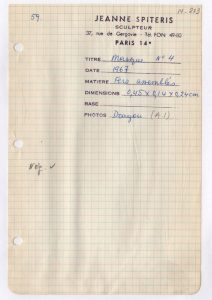 14-273
59.
JEANNE SPITERIS
SCULPTEUR
37, rue de Gergovie - Tél. FON 49-60
PARIS 14e
TITRE Masque N° 4
DATE 1967
MATIERE Fers assemblés
DIMENSIONS 0,45 x 0,14 x 0,24 cm
BASE
PHOTOS Drayou (A.I)
Nég. v